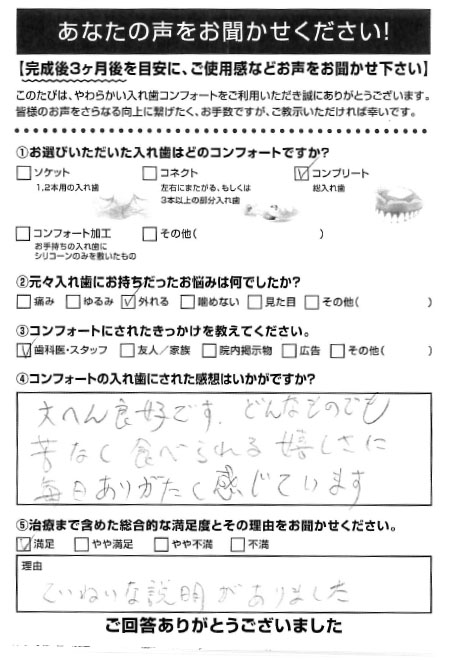 あなたの声をお聞かせください!
【完成後3ヶ月後を目安に、ご使用感などお声をお聞かせ下さい】
このたびは、やわらかい入れ歯コンフォートをご利用いただき誠にありがとうございます。
皆様のお声をさらなる向上に繋げたく、お手数ですが、ご教示いただければ幸いです。
①お選びいただいた入れ歯はどのコンフォートですか?
□ソケット □コネクト ☑コンプリート
1,2本用の入れ歯 左右にまたがる、もしくは 総入れ歯
3本以上の部分入れ歯
□コンフォート加工 □その他( )
お手持ちの入れ歯に
シリコーンのみを敷いたもの
②元々入れ歯にお持ちだったお悩みは何でしたか?
□痛み □ゆるみ ☑外れる □噛めない □見た目 □その他( )
③コンフォートにされたきっかけを教えてください。
☑歯科医・スタッフ □友人/家族 □院内掲示物 □広告 □その他( )
④コンフォートの入れ歯にされた感想はいかがですか?
大へん良好です。どんなものでも
苦なく食べられる嬉しさに
毎日ありがたく感じています
⑤治療まで含めた総合的な満足度とその理由をお聞かせください。
☑満足 □やや満足 □やや不満 □不満
理由
ていねいな説明がありました
ご回答ありがとうございました